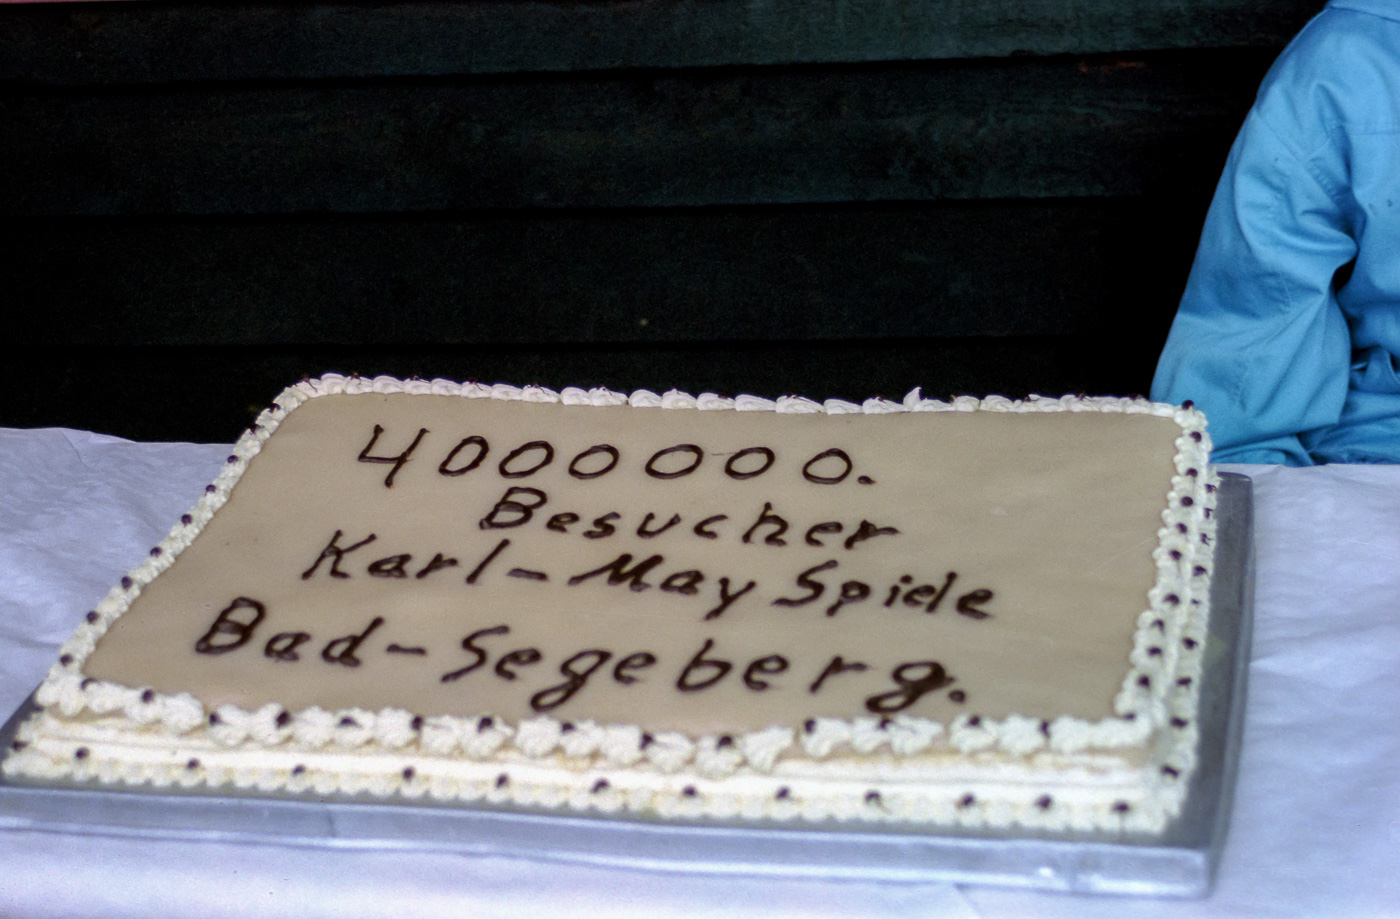 4000000.
Besucher
Karl-May Spiele
Bad-Segeberg.